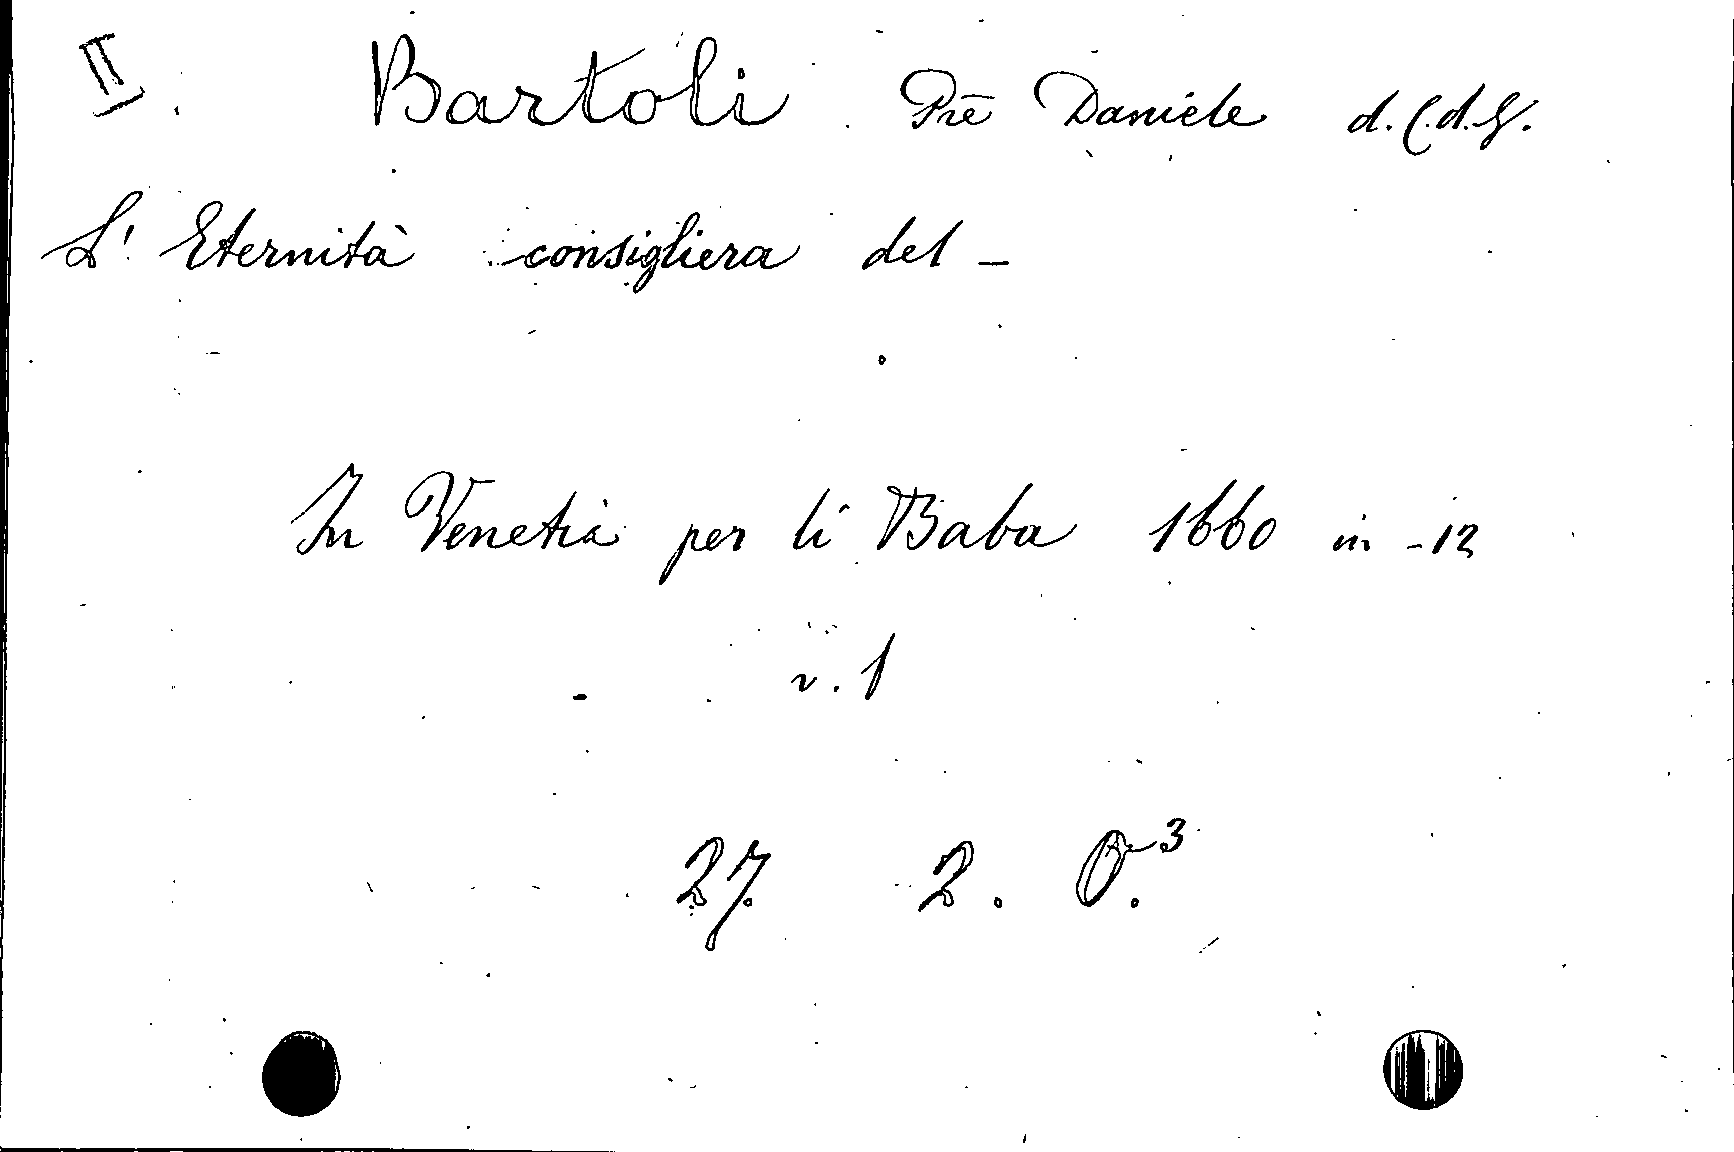 II. Bartoli Prē Daniele d.C.d.G.
L' Eternità consigliera del -
In Venetia per li Baba 1660 in -12
v. 1
27. 2. O.³